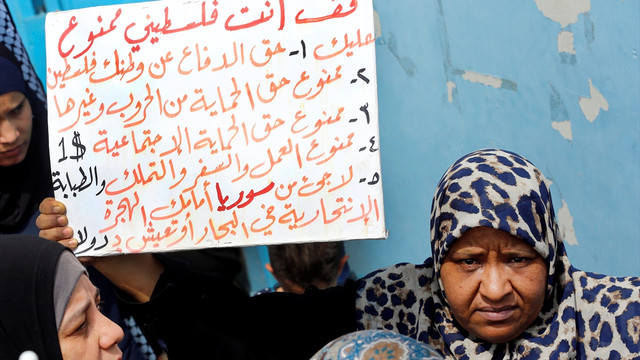 قف أنت فلسطيني ممنوع
عليك ١- حق الدفاع عن وطنك فلسطين
٢- ممنوع حق الحماية من الحروب وغيرها
٣- ممنوع حق الحماية الإجتماعية 1$
٤- ممنوع العمل والسفر والتملك والطبابة
٥- لاجئ من سوريا أمامك الهجرة
الإنتحارية في البحار أو تعيش ب دولار